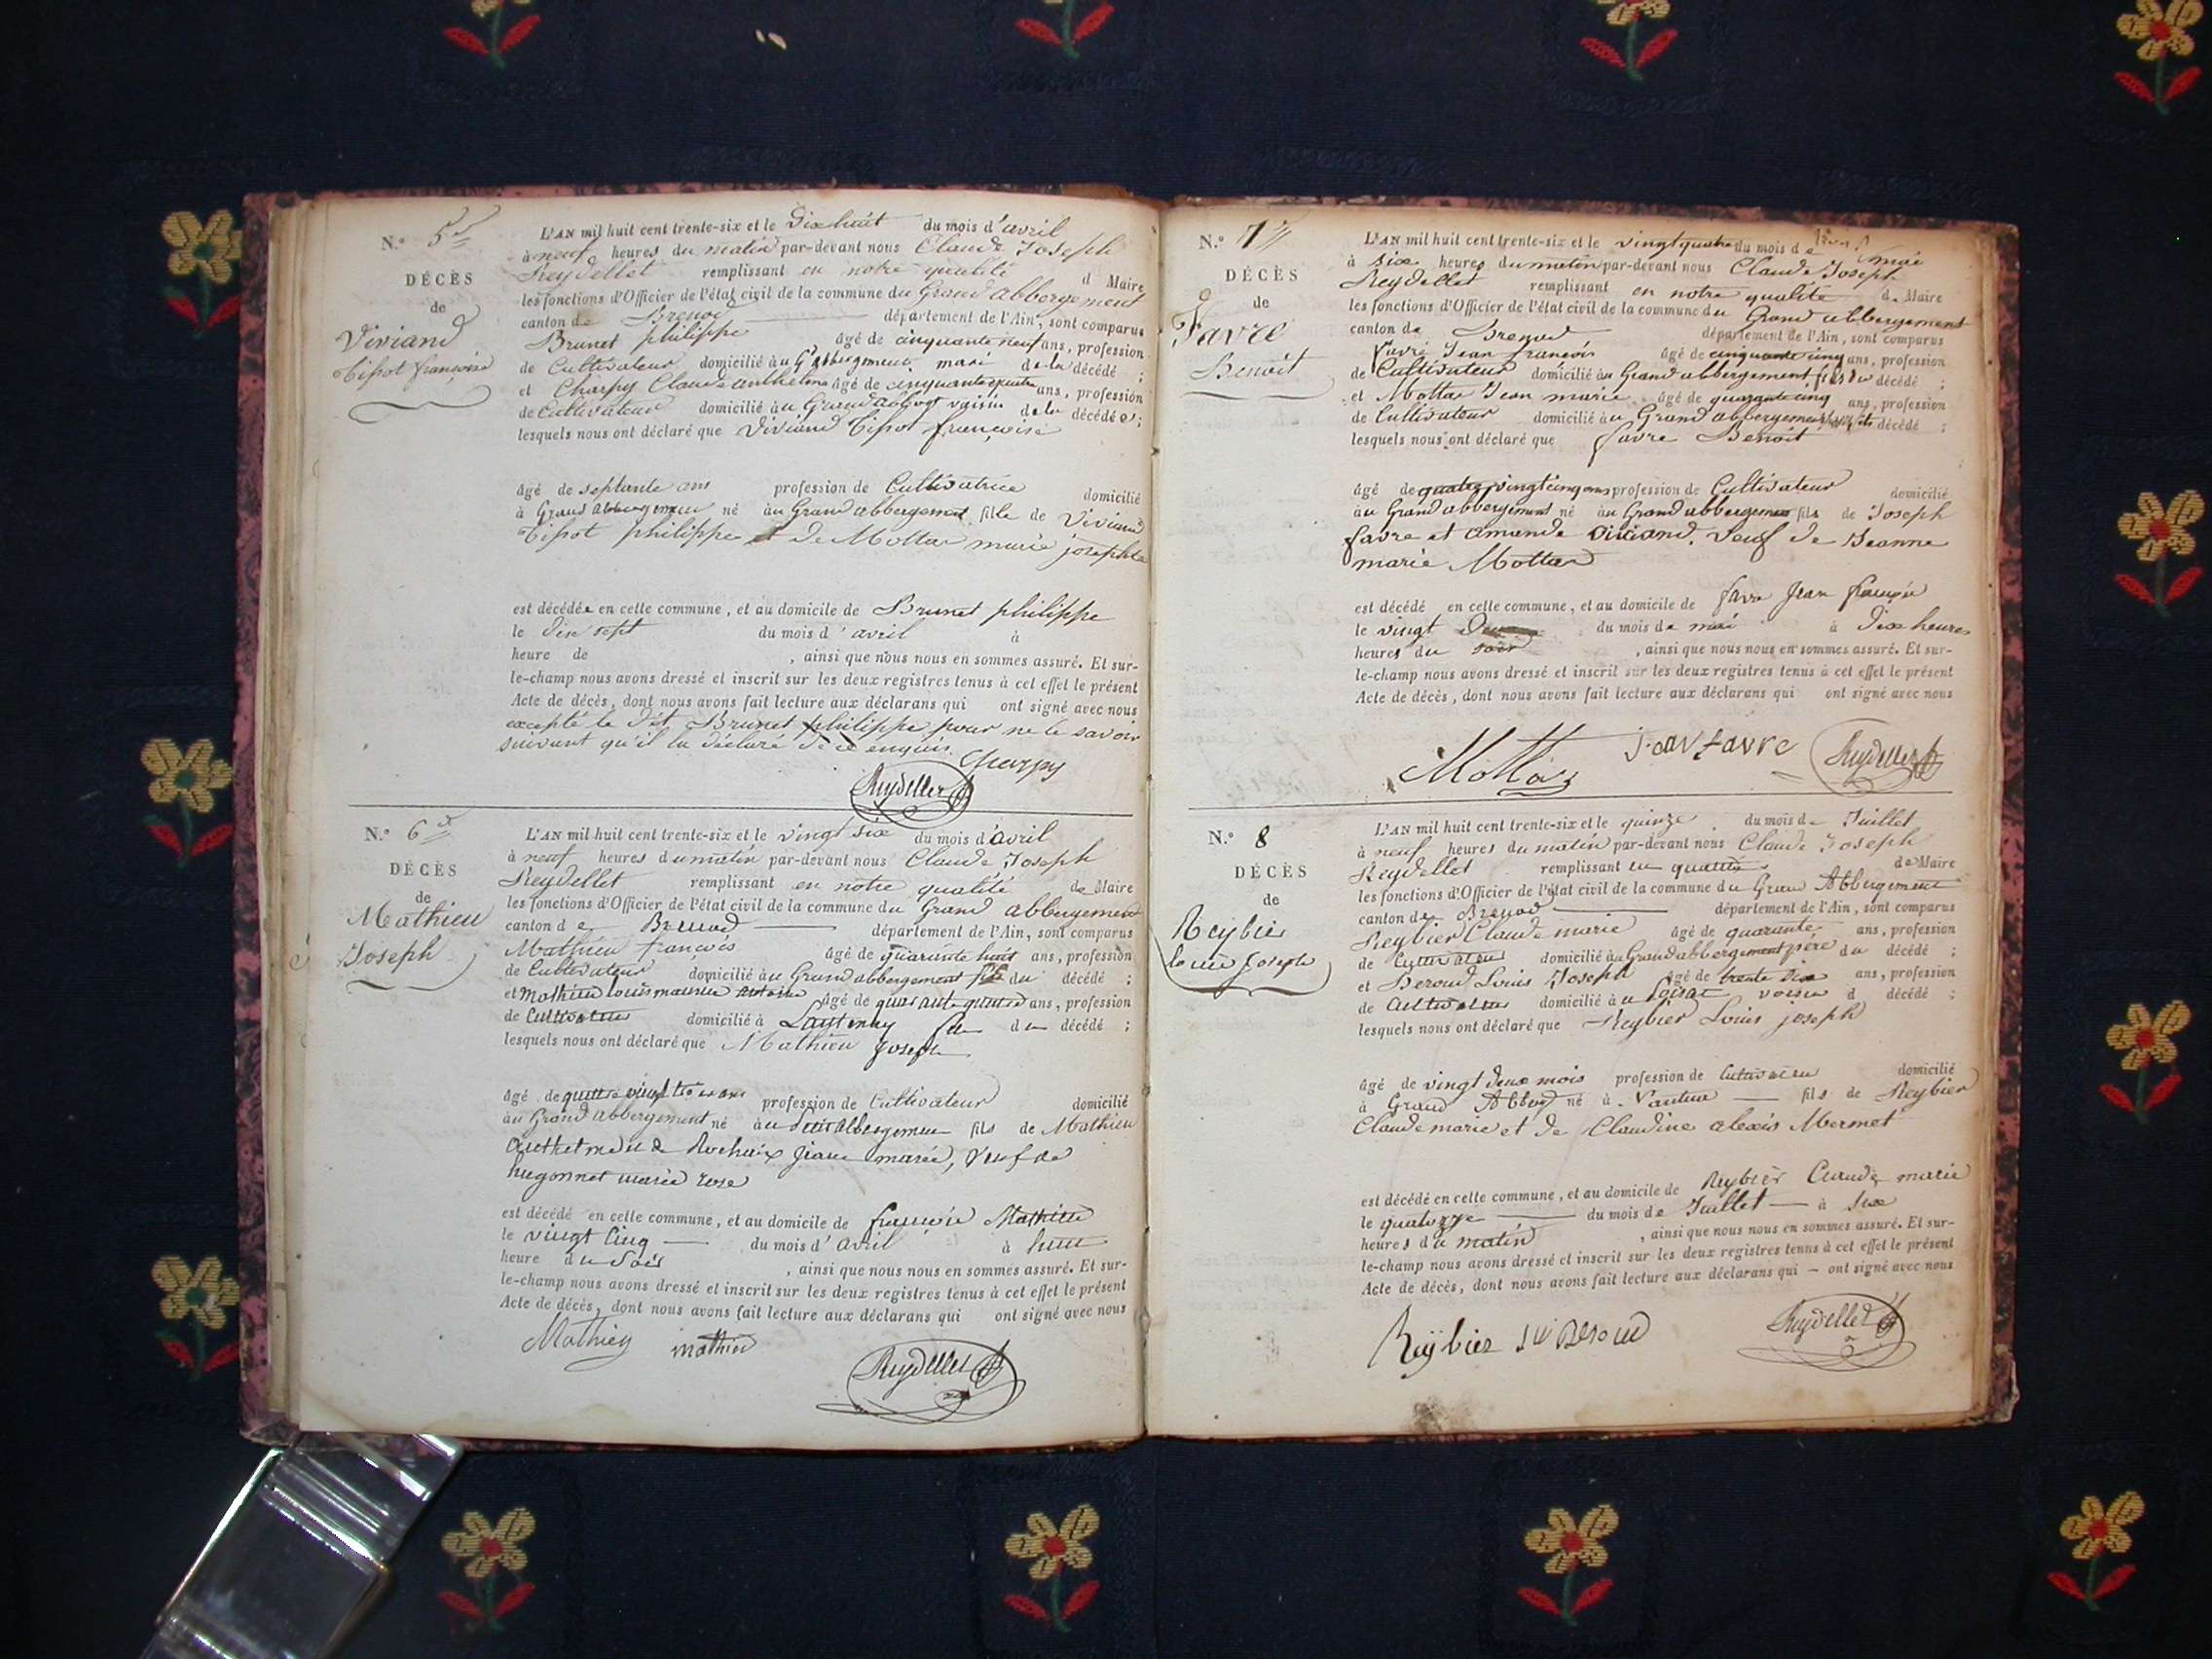 N.° 5
DÉCÈS
de
Viviand
tissot françoise
L'AN mil huit cent trente-six et le Dix huit du mois d'avril
à neuf heures du matin par-devant nous Claude Joseph
Reydellet remplissant en notre qualité d Maire
les fonctions d'Officier de l'état civil de la commune du Grand abbergement
canton de Brenod département de l'Ain, sont comparus
Brunet philippe âgé de cinquante neuf ans, profession
de Cultivateur domicilié au Gd abbergement mari de la décédé ;
et Charpy Claude anthelme âgé de cinquante quatre ans, profession
de Cultivateur domicilié au Grand abbgt voisin de la décédée ;
lesquels nous ont déclaré que Viviand tissot françoise
âgé de septante ans profession de Cultivatrice domicilié
à Grand abbergement né au Grand abbergement fille de Viviand
tissot philippe et de Mottaz marie josephte
est décédée en cette commune, et au domicile de Brunet philippe
le dix sept du mois d'avril à
heure de , ainsi que nous nous en sommes assuré. Et sur-
le-champ nous avons dressé et inscrit sur les deux registres tenus à cet effet le présent
Acte de décès, dont nous avons fait lecture aux déclarans qui ont signé avec nous
excepté le dit Brunet philippe pour ne le savoir
suivant qu'il la déclaré de ce enquis.
Charpy
Reydellet
N.° 6
DÉCÈS
de
Mathieu
Joseph
L'AN mil huit cent trente-six et le vingt six du mois d'avril
à neuf heures du matin par-devant nous Claude Joseph
Reydellet remplissant en notre qualité de Maire
les fonctions d'Officier de l'état civil de la commune du Grand abbergement
canton de Brenod département de l'Ain, sont comparus
Mathieu françois âgé de quarante huit ans, profession
de Cultivateur domicilié au Grand abbergement fils du décédé ;
et Mathieu louis maurice âgé de quarante quatre ans, profession
de Cultivateur domicilié à Lantenay fils du décédé ;
lesquels nous ont déclaré que Mathieu Joseph
âgé de quatre vingt trois ans profession de Cultivateur domicilié
au Grand abbergement né au petit abbergement fils de Mathieu
Anthelme et de Rochaix jeanne marie, veuf de
hugonnet marie rose
est décédé en cette commune, et au domicile de françois Mathieu
le vingt cinq du mois d'avril à huit
heure du soir , ainsi que nous nous en sommes assuré. Et sur-
le-champ nous avons dressé et inscrit sur les deux registres tenus à cet effet le présent
Acte de décès, dont nous avons fait lecture aux déclarans qui ont signé avec nous
Mathieu mathieu
Reydellet
N.° 7
DÉCÈS
de
Favre
Benoit
L'AN mil huit cent trente-six et le vingt quatre du mois de mai
à six heures du matin par-devant nous Claude Joseph
Reydellet remplissant en notre qualité de Maire
les fonctions d'Officier de l'état civil de la commune du Grand abbergement
canton de Brenod département de l'Ain, sont comparus
Favre Jean françois âgé de cinquante cinq ans, profession
de Cultivateur domicilié au Grand abbergement, fils du décédé ;
et Mottaz Jean marie âgé de quarante cinq ans, profession
de Cultivateur domicilié au Grand abbergement décédé ;
lesquels nous ont déclaré que favre Benoit
âgé de quatre vingt cinq ans profession de Cultivateur domicilié
au Grand abbergement né au Grand abbergement fils de Joseph
favre et amande Viviand. veuf de Jeanne
marie Mottaz
est décédé en cette commune, et au domicile de favre Jean françois
le vingt deux du mois de mai à dix heures
heures du soir , ainsi que nous nous en sommes assuré. Et sur-
le-champ nous avons dressé et inscrit sur les deux registres tenus à cet effet le présent
Acte de décès, dont nous avons fait lecture aux déclarans qui ont signé avec nous
Mottaz jean favre Reydellet
N.° 8
DÉCÈS
de
Reybier
louis Joseph
L'AN mil huit cent trente-six et le quinze du mois de Juillet
à neuf heures du matin par-devant nous Claude Joseph
Reydellet remplissant en qualité de Maire
les fonctions d'Officier de l'état civil de la commune du Grand Abbergement
canton de Brenod département de l'Ain, sont comparus
Reybier Claude marie âgé de quarante ans, profession
de Cultivateur domicilié au Grand abbergement père du décédé ;
et Beroud Louis Joseph âgé de trente six ans, profession
de Cultivateur domicilié au voisin d décédé ;
lesquels nous ont déclaré que Reybier Louis joseph
âgé de vingt deux mois profession de Cultivateur domicilié
à Grand Abbergt né à Nantua fils de Reybier
Claude marie et de Claudine alexis Mermet
est décédé en cette commune, et au domicile de Reybier Claude marie
le quatorze du mois de Juillet à six
heures du matin , ainsi que nous nous en sommes assuré. Et sur-
le-champ nous avons dressé et inscrit sur les deux registres tenus à cet effet le présent
Acte de décès, dont nous avons fait lecture aux déclarans qui – ont signé avec nous
Reybier Beroud Reydellet